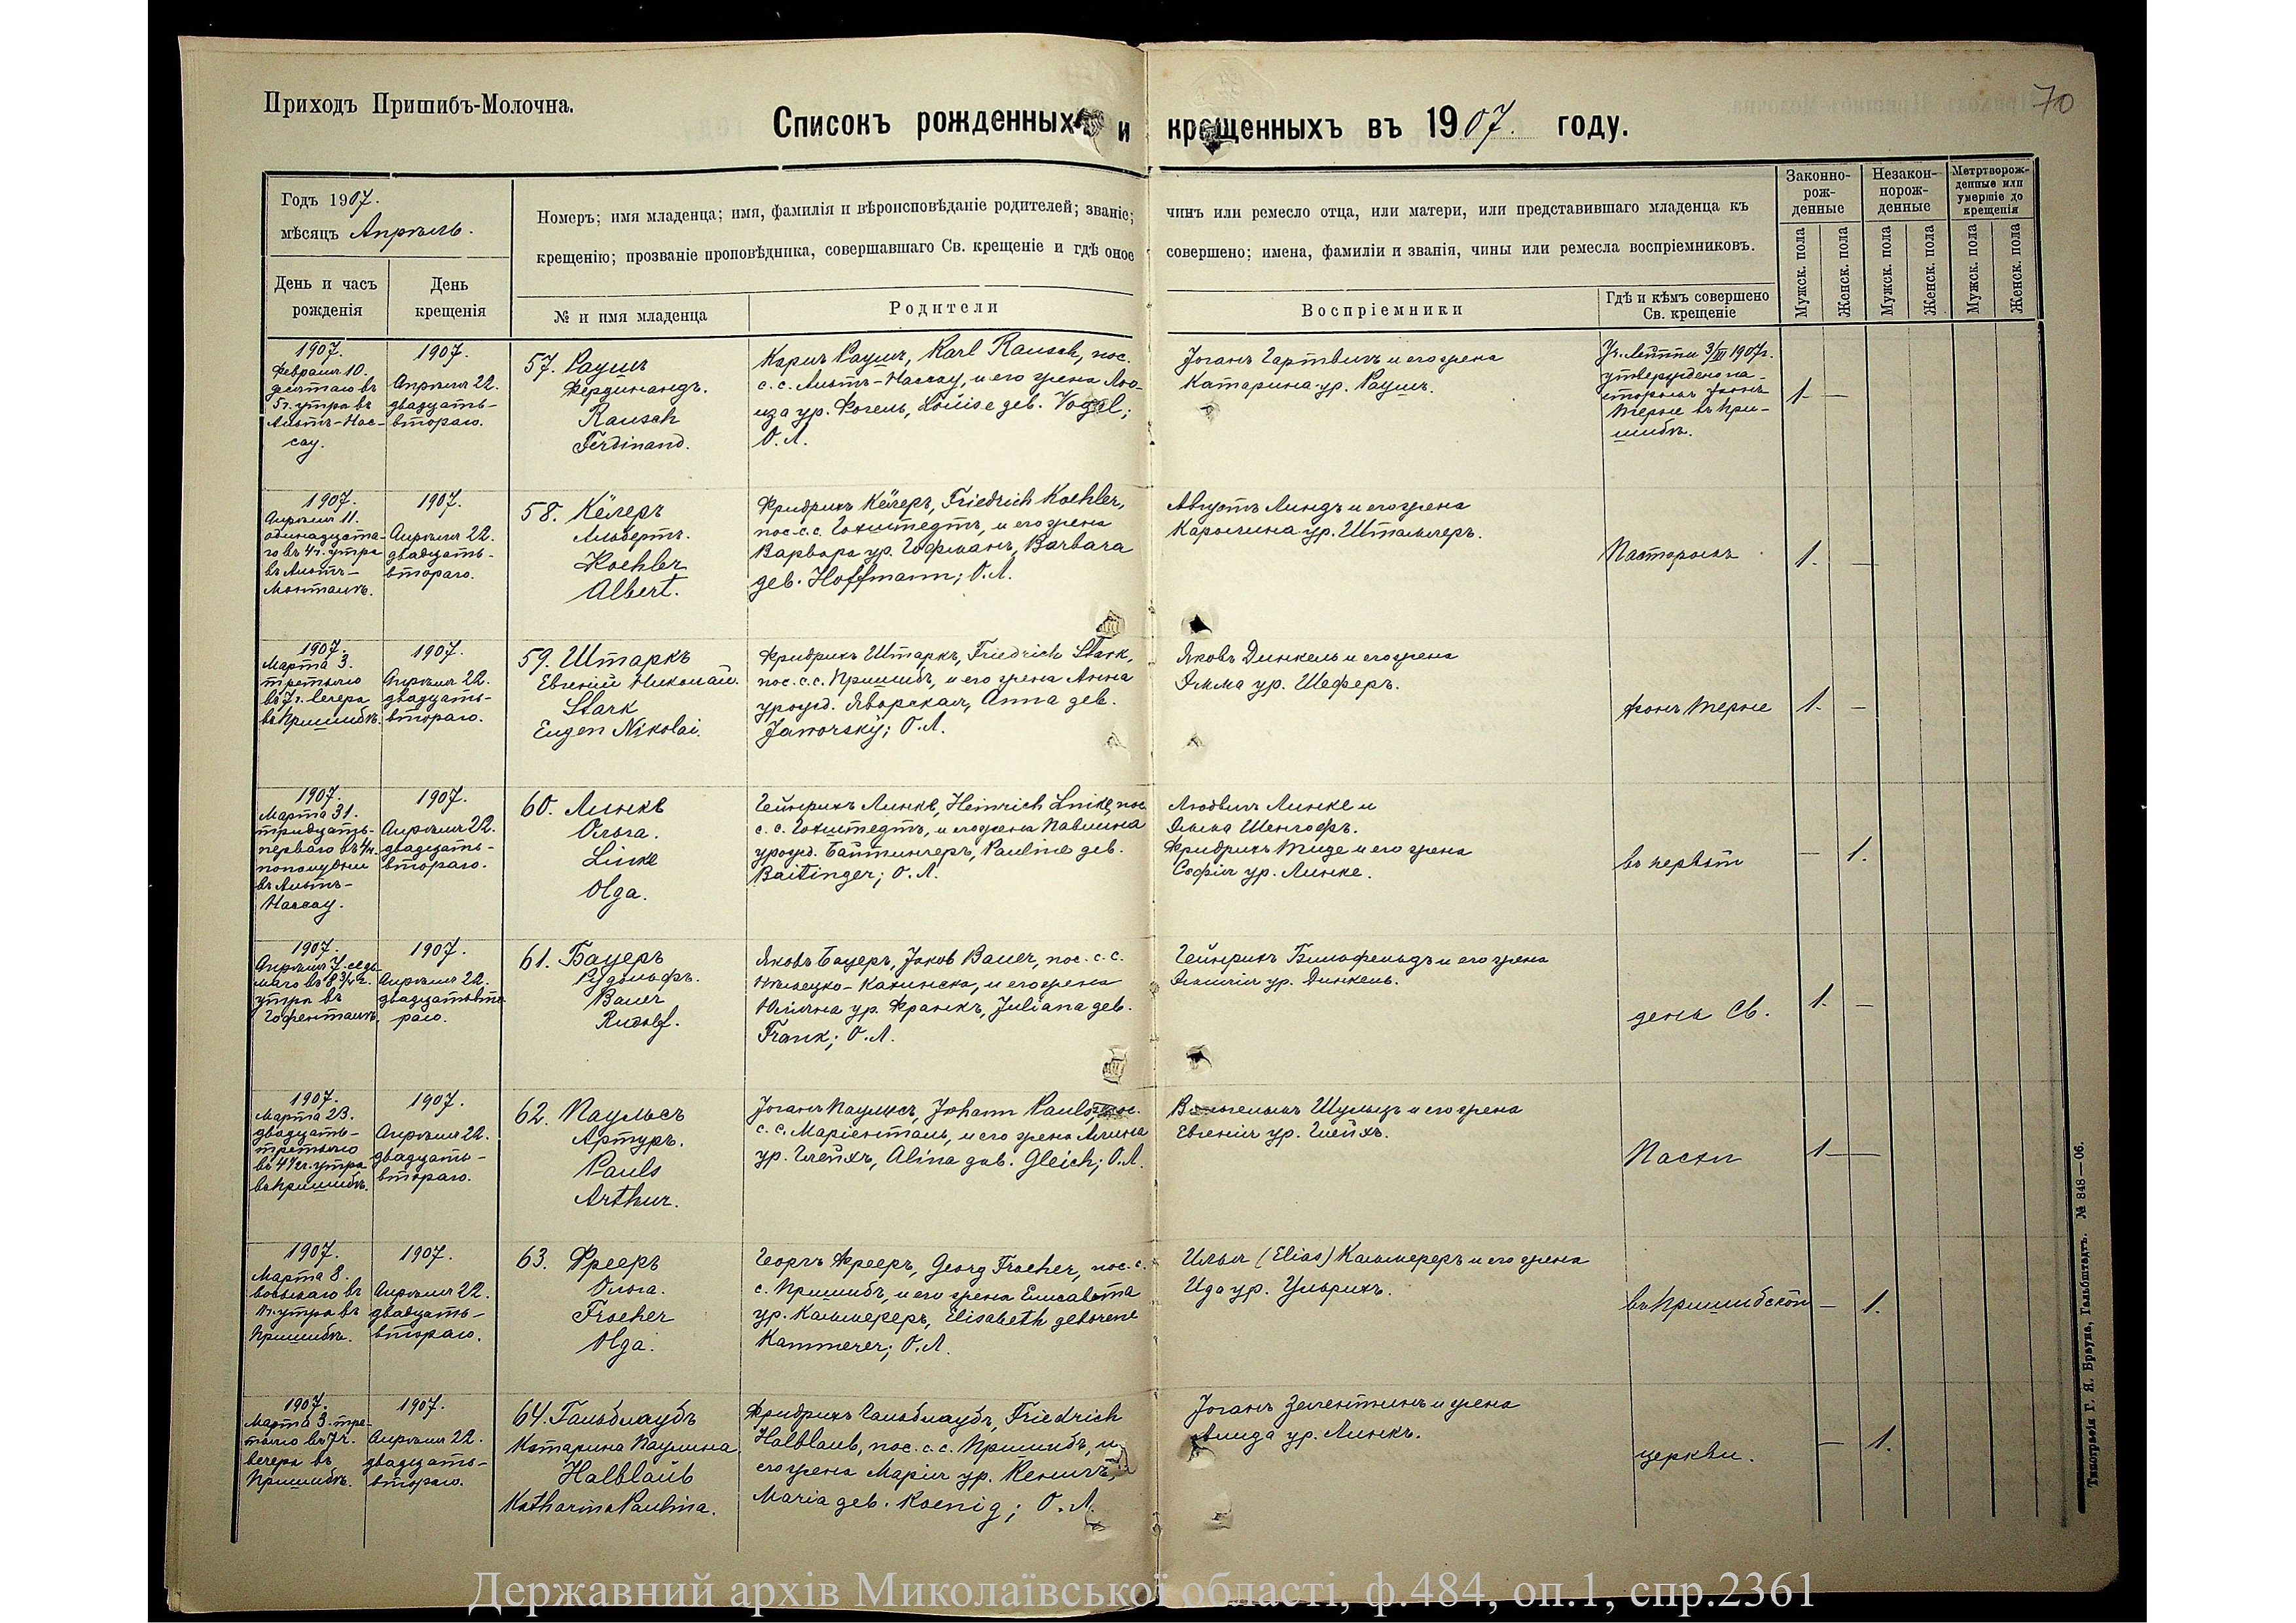 Приходъ Пришибъ-Молочна.
70
Списокъ рожденныхъ и крещенныхъ въ 1907. году.
Годъ 1907.
мѣсяцъ Апрѣль.
Номеръ; имя младенца; имя, фамилія и вѣроисповѣданіе родителей; званіе; чинъ или ремесло отца, или матери, или представившаго младенца къ
крещенію; прозваніе проповѣдника, совершавшаго Св. крещеніе и гдѣ оное совершено; имена, фамиліи и званія, чины или ремесла воспріемниковъ.
Законно-
рож-
денные
Незакон-
норож-
денные
Метртворож-
денные или
умершіе до
крещенія
День и часъ
рожденія
День
крещенія
№ и имя младенца
Родители
Воспріемники
Гдѣ и кѣмъ совершено
Св. крещеніе
Мужск. пола
Женск. пола
Мужск. пола
Женск. пола
Мужск. пола
Женск. пола
1907.
Февраля 10.
десятаго въ
5 ч. утра въ
Альтъ-Нас-
сау.
1907.
Апрѣля 22.
двадцать-
втораго.
57. Раушъ
Фердинандъ.
Rausch
Ferdinand.
Карлъ Раушъ, Karl Rausch, пос.
с. с. Альтъ-Нассау, и его жена Лю-
иза ур. Фогель, Louise geb. Vogel;
О. Л.
Іоганъ Гартвихъ и его жена
Катарина ур. Раушъ.
Уч. 3/III 1907 г.
утверждено па-
сторомъ фонъ
Терне въ При-
шибѣ.
1. —
1907.
Апрѣля 11.
одинадцата-
го въ 4 ч. утра
въ Альтъ-
Монталѣ.
1907.
Апрѣля 22.
двадцать-
втораго.
58. Кёлеръ
Альбертъ.
Koehler
Albert.
Фридрихъ Кёлеръ, Friedrich Koehler,
пос. с. с. Гохштедтъ, и его жена
Варвара ур. Гофманъ, Barbara
geb. Hoffmann; О. Л.
Августъ Линдъ и его жена
Каролина ур. Штамлеръ.
Пасторомъ
1. —
1907.
Марта 3.
третьяго
въ 7 ч. вечера
въ Пришибѣ.
1907.
Апрѣля 22.
двадцать-
втораго.
59. Штаркъ
Евгеній Николай.
Stark
Eugen Nikolai.
Фридрихъ Штаркъ, Friedrich Stark,
пос. с. с. Пришибъ, и его жена Анна
урожд. Яворская, Anna geb.
Jaworsky; О. Л.
Яковъ Динкель и его жена
Эмма ур. Шеферъ.
фонъ Терне
1. —
1907.
Марта 31.
тридцать-
перваго въ 4 ч.
пополудни
въ Альтъ-
Нассау.
1907.
Апрѣля 22.
двадцать-
втораго.
60. Линке
Ольга.
Linke
Olga.
Гейнрихъ Линке, Heinrich Linke, пос.
с. с. Гохштедтъ, и его жена Павлина
урожд. Байтингеръ, Pauline geb.
Baitinger; О. Л.
Людвигъ Линке и
Эмма Шенгофъ.
Фридрихъ Тиде и его жена
Софія ур. Линке.
въ первый
— 1.
1907.
Апрѣля 7. седь-
маго въ 8 3/4 ч.
утра въ
Гофенталѣ.
1907.
Апрѣля 22.
двадцатьвто-
раго.
61. Бауеръ
Рудольфъ.
Bauer
Rudolf.
Яковъ Бауеръ, Jakob Bauer, пос. с. с.
Нѣмецко-Каминска, и его жена
Юліяна ур. Франкъ, Juliana geb.
Frank; О. Л.
Гейнрихъ Билофельдъ и его жена
Эмилія ур. Динкель.
день Св.
1. —
1907.
Марта 23.
двадцать-
третьяго
въ 4 1/2 ч. утра
въ Пришибѣ.
1907.
Апрѣля 22.
двадцать-
втораго.
62. Паульсъ
Артуръ.
Pauls
Arthur.
Іоганъ Паульсъ, Johann Pauls, пос.
с. с. Маріенталь, и его жена Алина
ур. Глейхъ, Alina geb. Gleich; О. Л.
Вильгельмъ Шульцъ и его жена
Евгенія ур. Глейхъ.
Пасхи
1. —
1907.
Марта 8.
восьмаго въ
утра въ
Пришибѣ.
1907.
Апрѣля 22.
двадцать-
втораго.
63. Фрееръ
Ольга.
Froeher
Olga.
Георгъ Фрееръ, Georg Froeher, пос. с.
с. Пришибъ, и его жена Елисавета
ур. Каммереръ, Elisabeth geborene
Kammerer; О. Л.
Илья (Elias) Каммереръ и его жена
Ида ур. Ульрихъ.
въ Пришибской
— 1.
1907.
Марта 3. тре-
тьяго въ 7 ч.
вечера въ
Пришибѣ.
1907.
Апрѣля 22.
двадцать-
втораго.
64. Гальблаубъ
Катарина Паулина.
Halblaub
Katharina Paulina.
Фридрихъ Гальблаубъ, Friedrich
Halblaub, пос. с. с. Пришибъ, и
его жена Марія ур. Кенигъ,
Maria geb. Koenig; О. Л.
Іоганъ Залентинъ и жена
ур. Линкъ.
церкви.
— 1.
Типографія Г. Я. Брауна, Гальбштадтъ. № 848—06.
Державний архів Миколаївської області, ф.484, оп.1, спр.2361